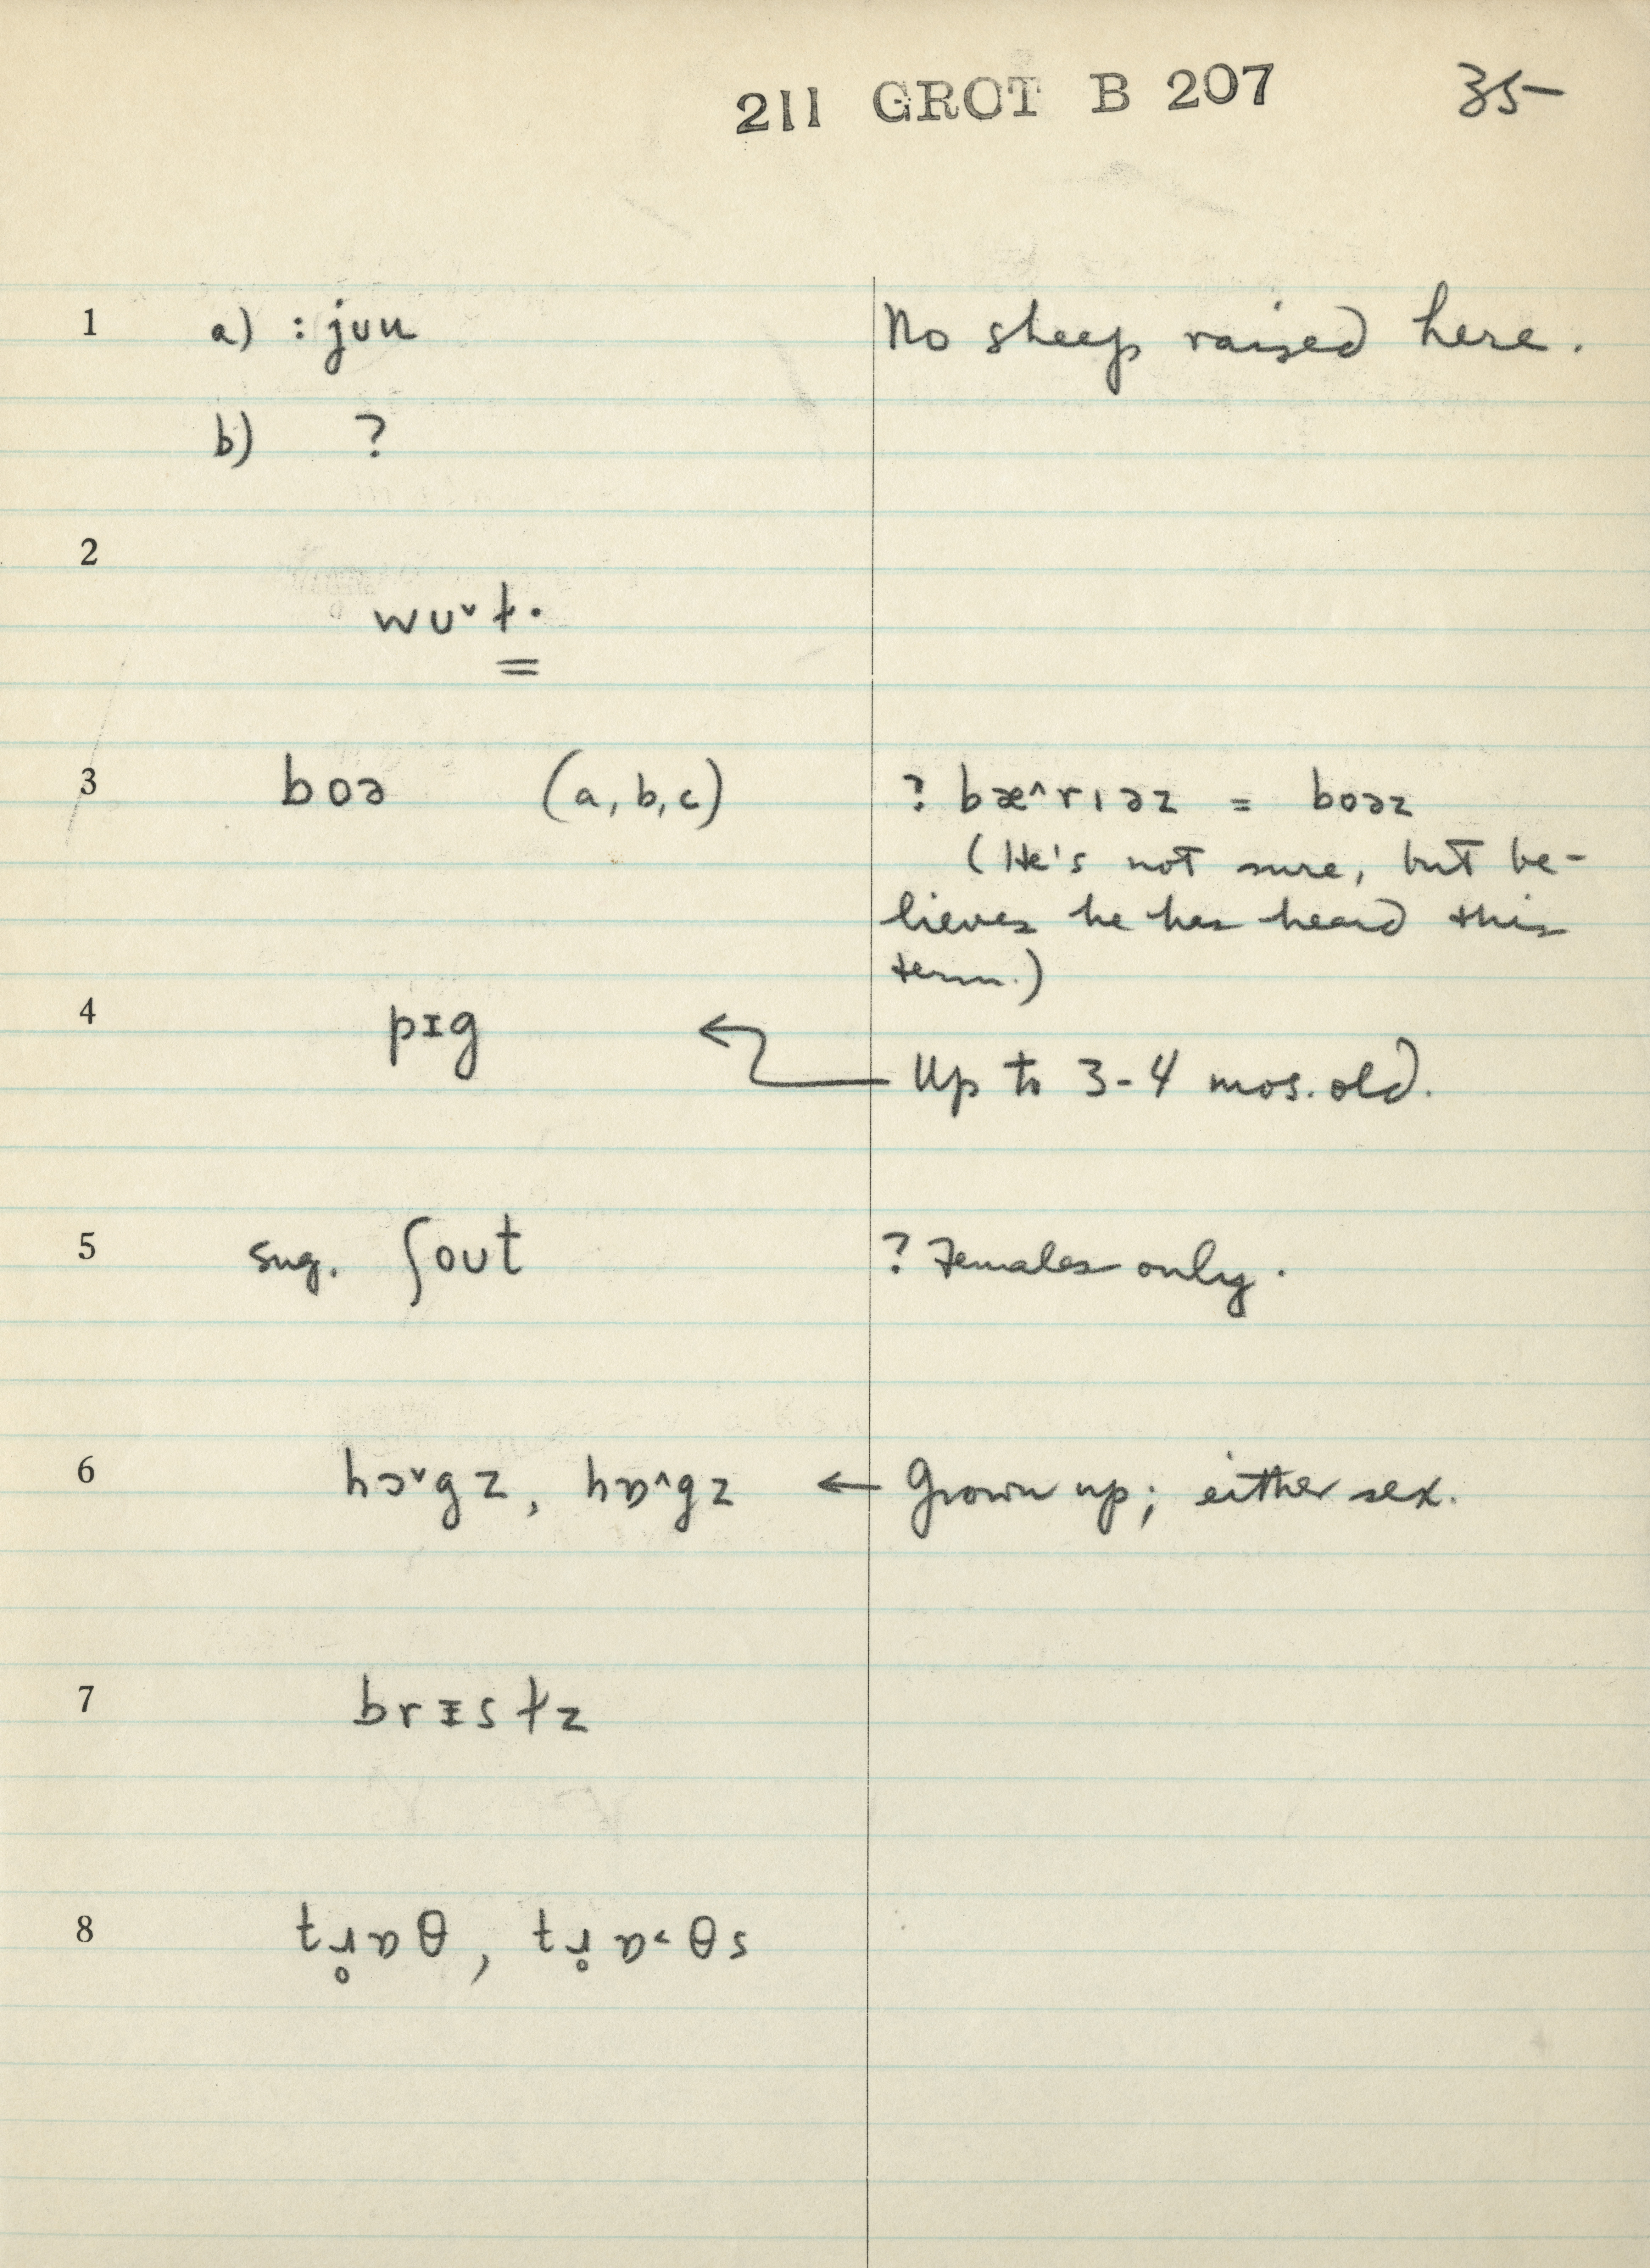 211 GROT B 207 35-
1 a) : juu No sheep raised here.
b) ?
2
wʊˇɫ·
3 boə (a, b, c) ? bæ^rɪəz = boəz
(He's not sure, but be-
lieves he has heard this
term.)
4 pɪg ← Up to 3-4 mos. old.
5 sug. ʃout ? Females only.
6 hɔˇgz, hɒ^gz ← Grown up; either sex.
7 brɪsɫz
8